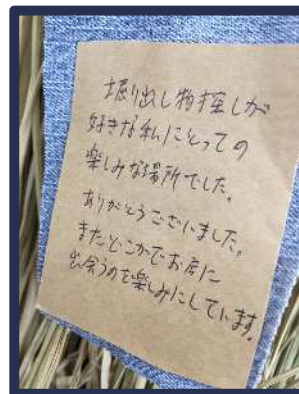 掘り出し物探しが
好きな私にとっての
楽しみな場所でした。
ありがとうございました。
またどこかでお店に
出会うのを楽しみにしています。